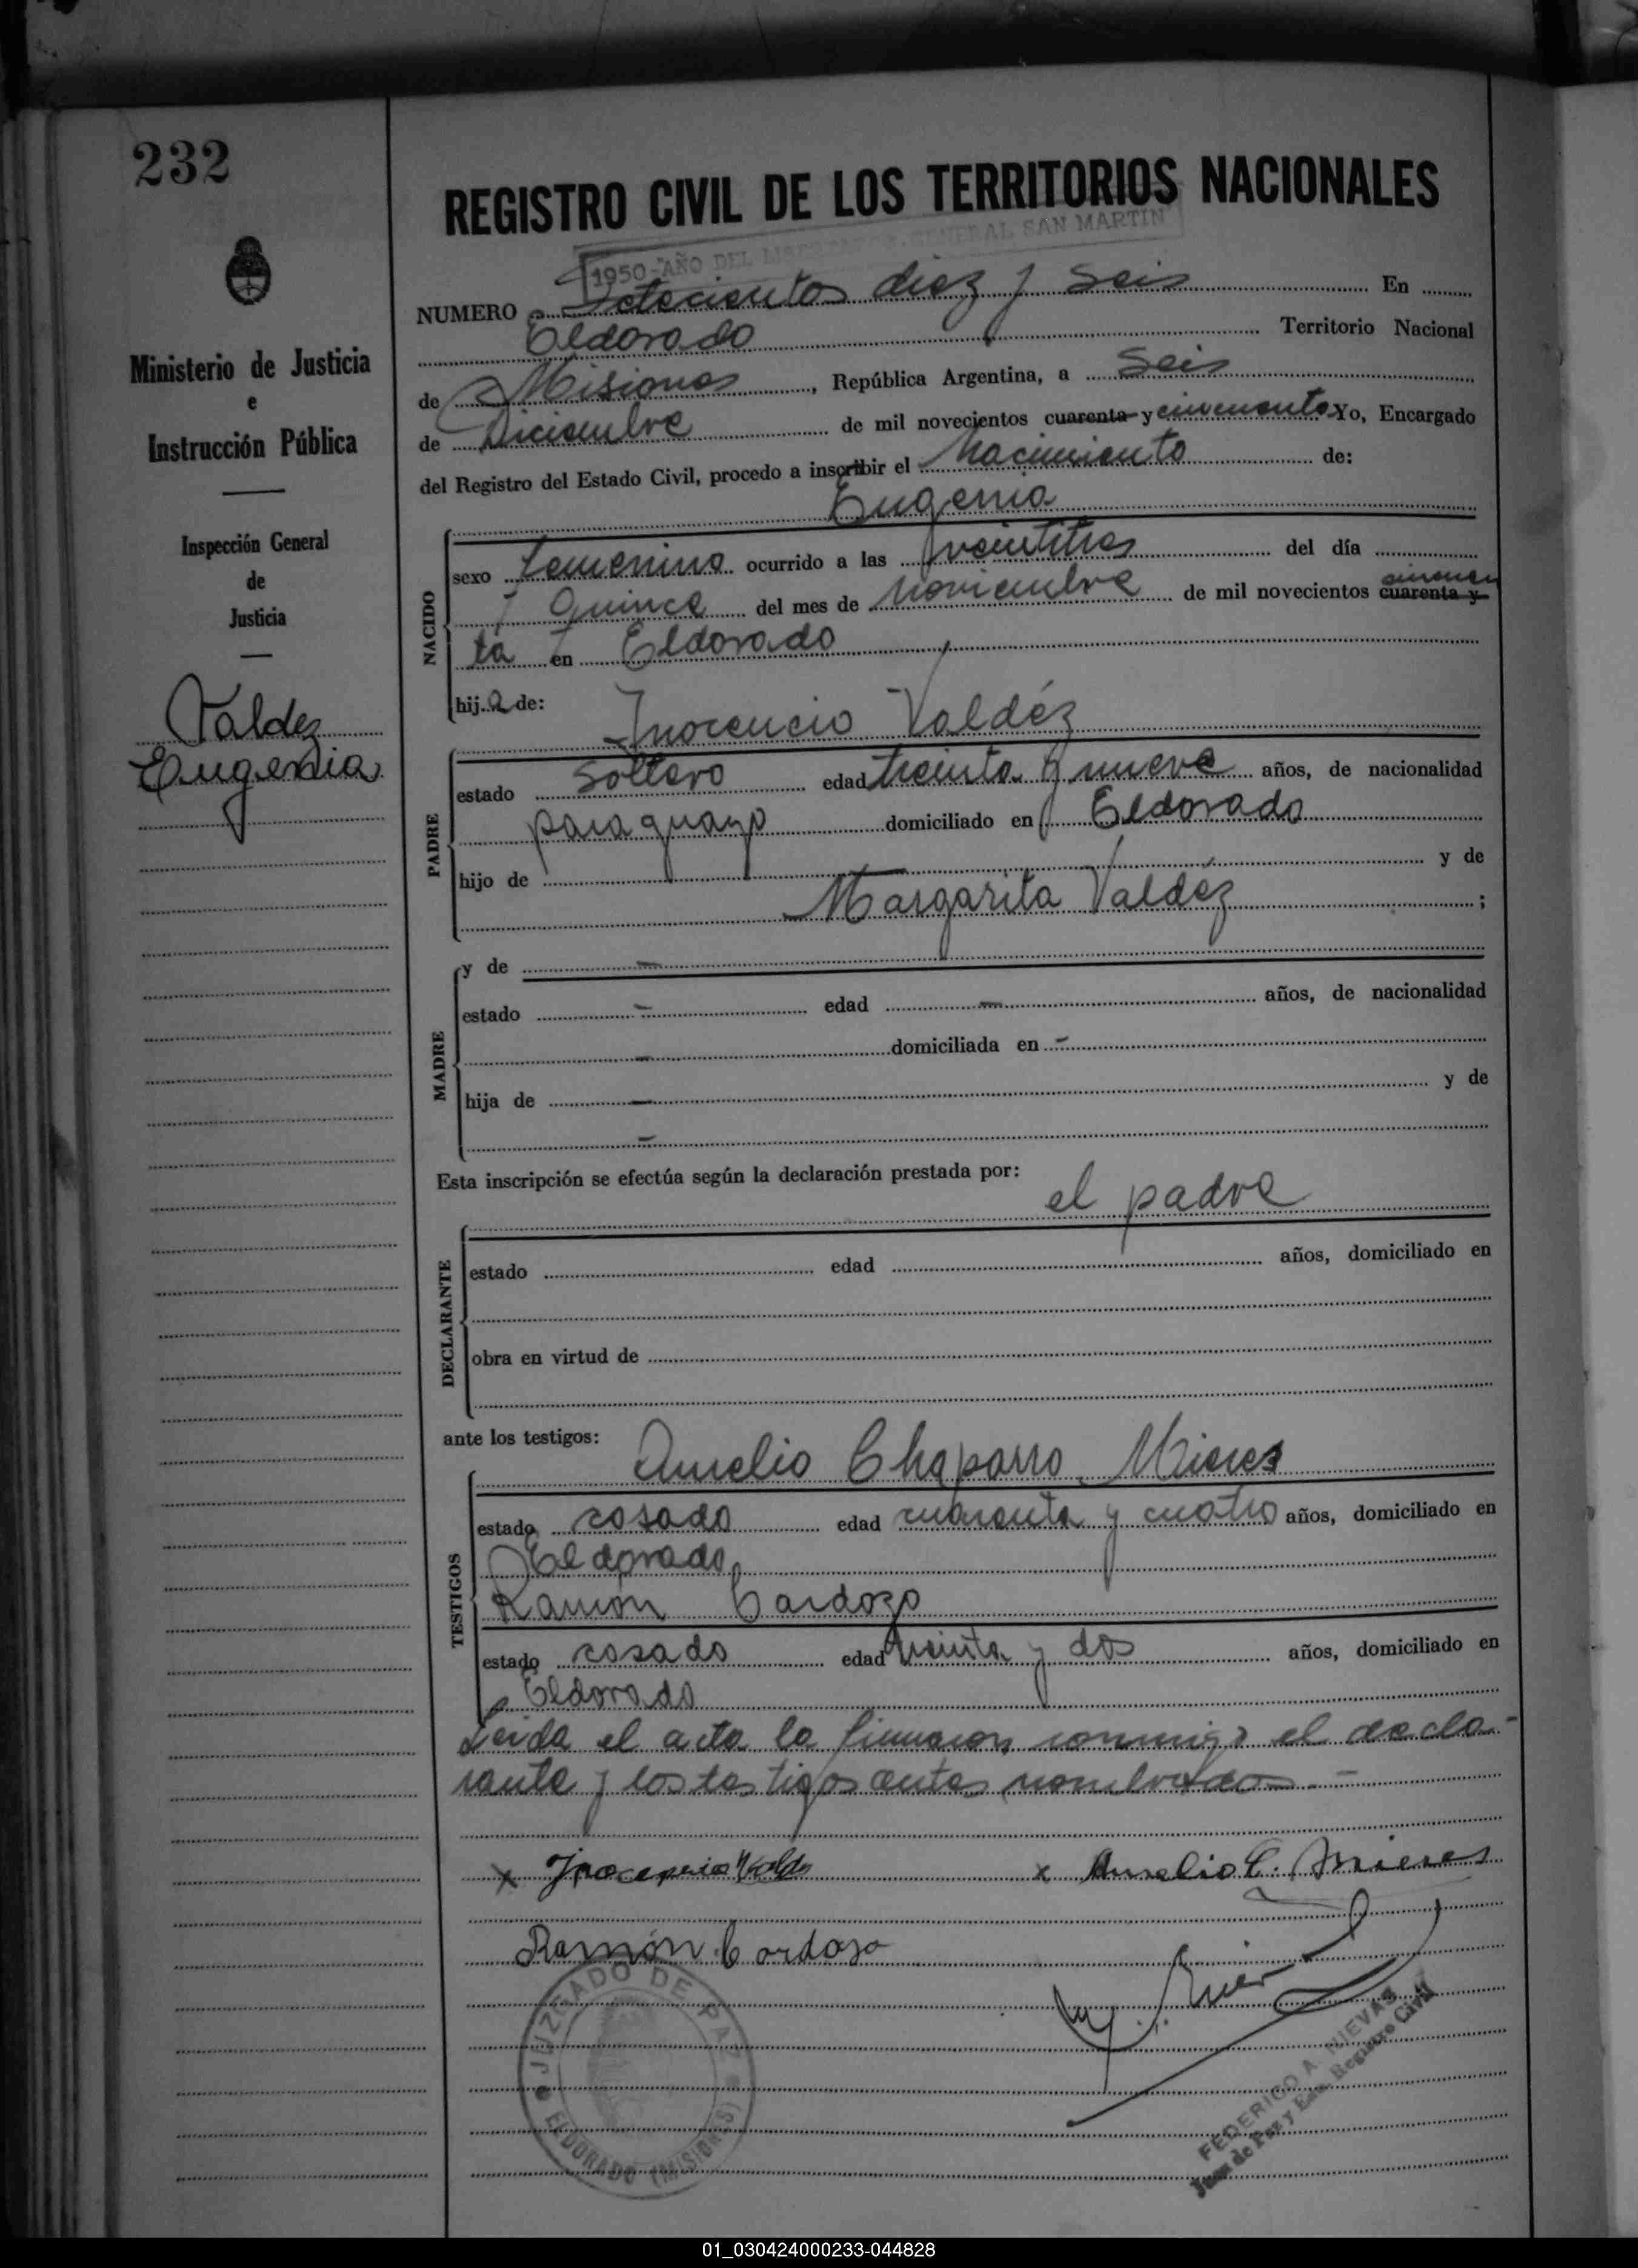 232
REGISTRO CIVIL DE LOS TERRITORIOS NACIONALES
1950-AÑO DEL LIBERTADOR GENERAL SAN MARTIN
NUMERO Setecientos diez y seis En
Eldorado Territorio Nacional
de Misiones, República Argentina, a seis
de Diciembre de mil novecientos cuarenta y cincuenta Yo, Encargado
del Registro del Estado Civil, procedo a inscribir el Nacimiento de:
Eugenia
NACIDO
sexo femenino ocurrido a las veintitres del día
quince del mes de noviembre de mil novecientos cuarenta y cincuen
ta en Eldorado
hija de:
Inocencio Valdéz
PADRE
estado soltero edad treinta y nueve años, de nacionalidad
paraguayo domiciliado en Eldorado
hijo de y de
Margarita Valdéz ;
MADRE
y de -
estado - edad - años, de nacionalidad
- domiciliada en -
hija de - y de
-
Esta inscripción se efectúa según la declaración prestada por:
el padre
DECLARANTE
estado edad años, domiciliado en
obra en virtud de
ante los testigos:
Aurelio Chaparro Mieres
TESTIGOS
estado casado edad cuarenta y cuatro años, domiciliado en
Eldorado
Ramón Cardozo
estado casado edad treinta y dos años, domiciliado en
Eldorado
Leida el acta la firmaron conmigo el decla-
rante y los testigos antes nombrados.-
x Inocencio Valdez x Aurelio C. Mieres
Ramón Cardozo
JUZGADO DE PAZ
ELDORADO (MISIONES)
FEDERICO A. NIEVAS
Juez de Paz y Enc. Registro Civil
Ministerio de Justicia
e
Instrucción Pública
Inspección General
de
Justicia
Valdez
Eugenia
01_030424000233-044828